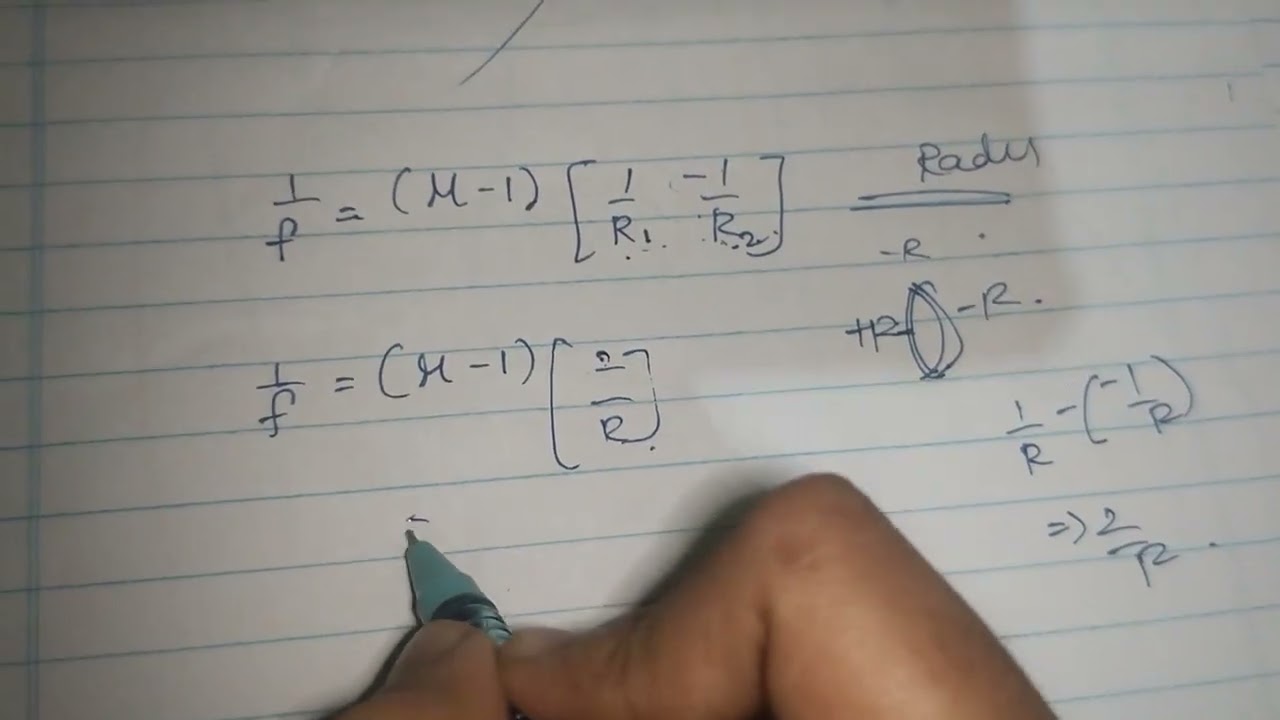 1/f = (μ - 1) [1/R₁ - 1/R₂]
Radus
-R
+R -R.
1/f = (μ - 1) [2/R].
1/R - (-1/R)
=> 2/R.